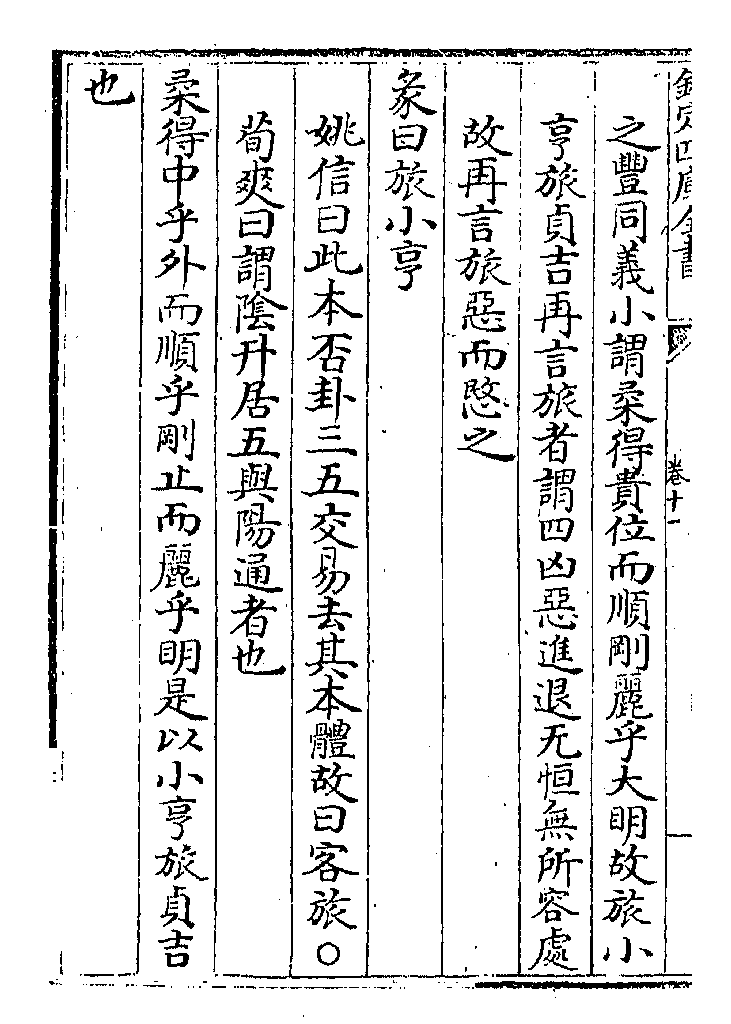 欽定四庫全書
卷十一
之豐同義小謂柔得貴位而順剛麗乎大明故旅小
亨旅貞吉再言旅者謂四凶惡進退无恒無所容處
故再言旅惡而愍之
彖曰旅小亨
姚信曰此本否卦三五交易去其本體故曰客旅○
荀爽曰謂陰升居五與陽通者也
柔得中乎外而順乎剛止而麗乎明是以小亨旅貞吉
也